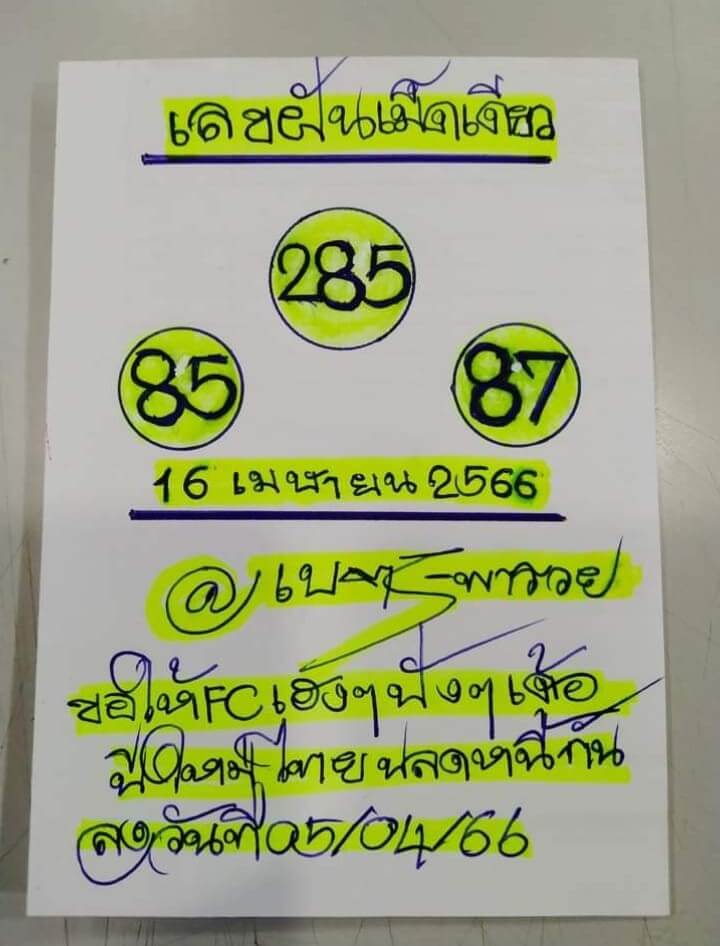 เลขฝันเม็ดเดียว
285
85 87
16 เมษายน 2566
@เบนซ์พารวย
ขอให้FCเฮงๆปังๆเด้อ
ปีใหม่ไทยปลดหนี้กัน
ลงวันที่05/04/66